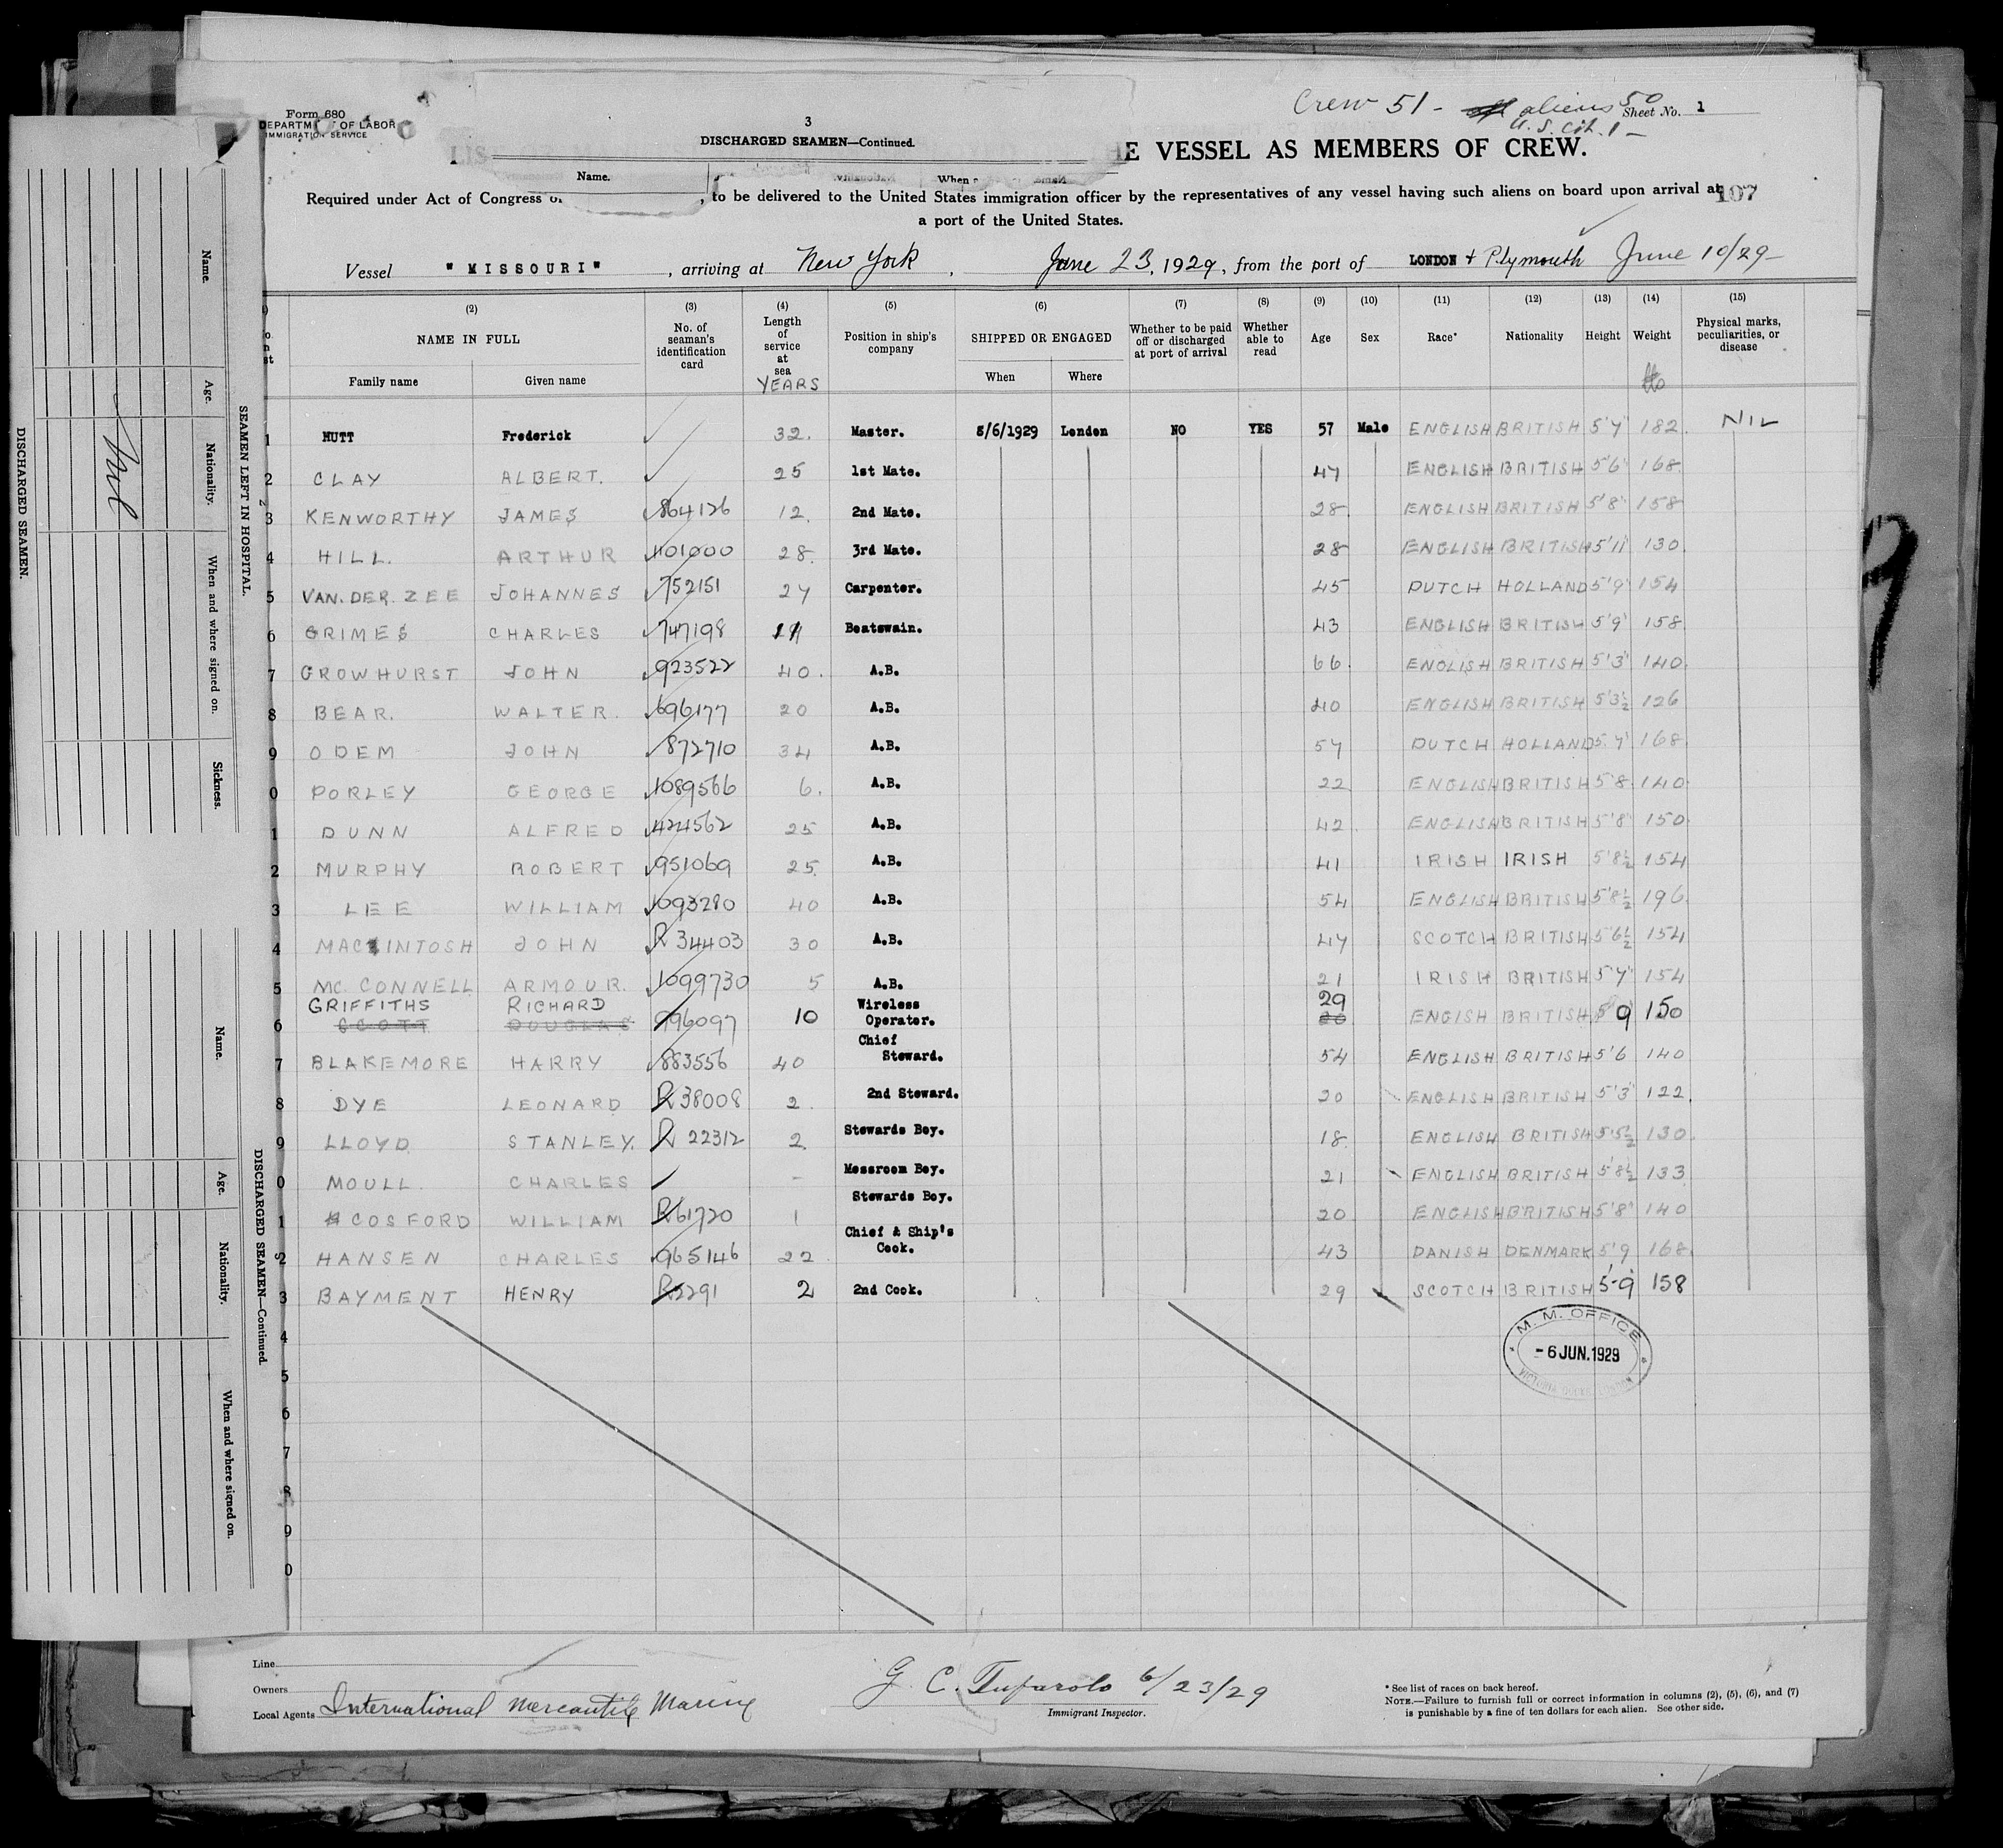 Form 680
DEPARTM OF LABOR
IMMIGRATION SERVICE
Crew 51 - aliens 50
U.S. Cit. 1 -
Sheet No. 1
3
DISCHARGED SEAMEN—Continued.
E VESSEL AS MEMBERS OF CREW.
Name. When
Required under Act of Congress of , to be delivered to the United States immigration officer by the representatives of any vessel having such aliens on board upon arrival at
107
a port of the United States.
Vessel "MISSOURI" , arriving at New York , June 23, 1929, from the port of LONDON + Plymouth June 10/29-
(2) (3) (4) (5) (6) (7) (8) (9) (10) (11) (12) (13) (14) (15)
NAME IN FULL
Family name Given name
No. of seaman's identification card
Length of service at sea YEARS
Position in ship's company
SHIPPED OR ENGAGED
When Where
Whether to be paid off or discharged at port of arrival
Whether able to read
Age Sex Race* Nationality Height Weight
Physical marks, peculiarities, or disease
1 HUTT Frederick 32. Master. 5/6/1929 London NO YES 57 Male ENGLISH BRITISH 5'7" 182. NIL
2 CLAY ALBERT. 25 1st Mate. 47 ENGLISH BRITISH 5'6" 168.
3 KENWORTHY JAMES 864126 12. 2nd Mate. 28. ENGLISH BRITISH 5'8" 158
4 HILL. ARTHUR 1101000 28. 3rd Mate. 28 ENGLISH BRITISH 5'11" 130.
5 VAN. DER. ZEE JOHANNES 752151 27 Carpenter. 45 DUTCH HOLLAND 5'9" 154
6 GRIMES CHARLES 747198 Boatswain. 43 ENGLISH BRITISH 5'9" 158.
7 GROWHURST JOHN 923522 40. A.B. 66. ENGLISH BRITISH 5'3" 140.
8 BEAR. WALTER. 696177 20 A.B. 40 ENGLISH BRITISH 5'3½ 126
9 ODEM JOHN 872710 34 A.B. 57 DUTCH HOLLAND 5'7" 168.
0 PORLEY GEORGE 1089566 6. A.B. 22 ENGLISH BRITISH 5'8. 140.
1 DUNN ALFRED 424562 25 A.B. 42 ENGLISH BRITISH 5'8" 150.
2 MURPHY ROBERT 951069 25. A.B. 41 IRISH IRISH 5'8½ 154
3 LEE WILLIAM 1093280 40 A.B. 54 ENGLISH BRITISH 5'8½ 196.
4 MACKINTOSH JOHN R 34403 30 A.B. 47 SCOTCH BRITISH 5'6½ 154
5 MC. CONNELL ARMOUR. 1099730 5 A.B. 21 IRISH BRITISH 5'7" 154
GRIFFITHS RICHARD Wireless 29
6 SCOTT DOUGLAS 996097 10 Operator. 20 ENGISH BRITISH 5 9 150
7 BLAKEMORE HARRY 883556 40 Chief Steward. 54 ENGLISH BRITISH 5'6 140
8 DYE LEONARD R38008 2. 2nd Steward. 20 ENGLISH BRITISH 5'3" 122.
9 LLOYD STANLEY. R 22312 2. Stewards Boy. 18. ENGLISH BRITISH 5'5½ 130.
0 MOULL. CHARLES - Messroom Boy. 21 ENGLISH BRITISH 5'8½ 133
1 COSFORD WILLIAM R61720 1 Stewards Boy. 20 ENGLISH BRITISH 5'8" 140
2 HANSEN CHARLES 965146 22 Chief & Ship's Cook. 43 DANISH DENMARK 5'9 168.
3 BAYMENT HENRY R5291 2 2nd Cook. 29 SCOTCH BRITISH 5-9 158
4
5
6
7
8
9
0
M. M. OFFICE
-6 JUN.1929
VICTORIA DOCKS LONDON
Line
Owners
Local Agents International Mercantile Marine
G. C. Tufarolo 6/23/29
Immigrant Inspector.
* See list of races on back hereof.
NOTE.—Failure to furnish full or correct information in columns (2), (5), (6), and (7)
is punishable by a fine of ten dollars for each alien. See other side.
DISCHARGED SEAMEN.
SEAMEN LEFT IN HOSPITAL.
Name. Age. Nationality. When and where signed on. Sickness.
Nil
DISCHARGED SEAMEN—Continued.
Name. Age. Nationality. When and where signed on.